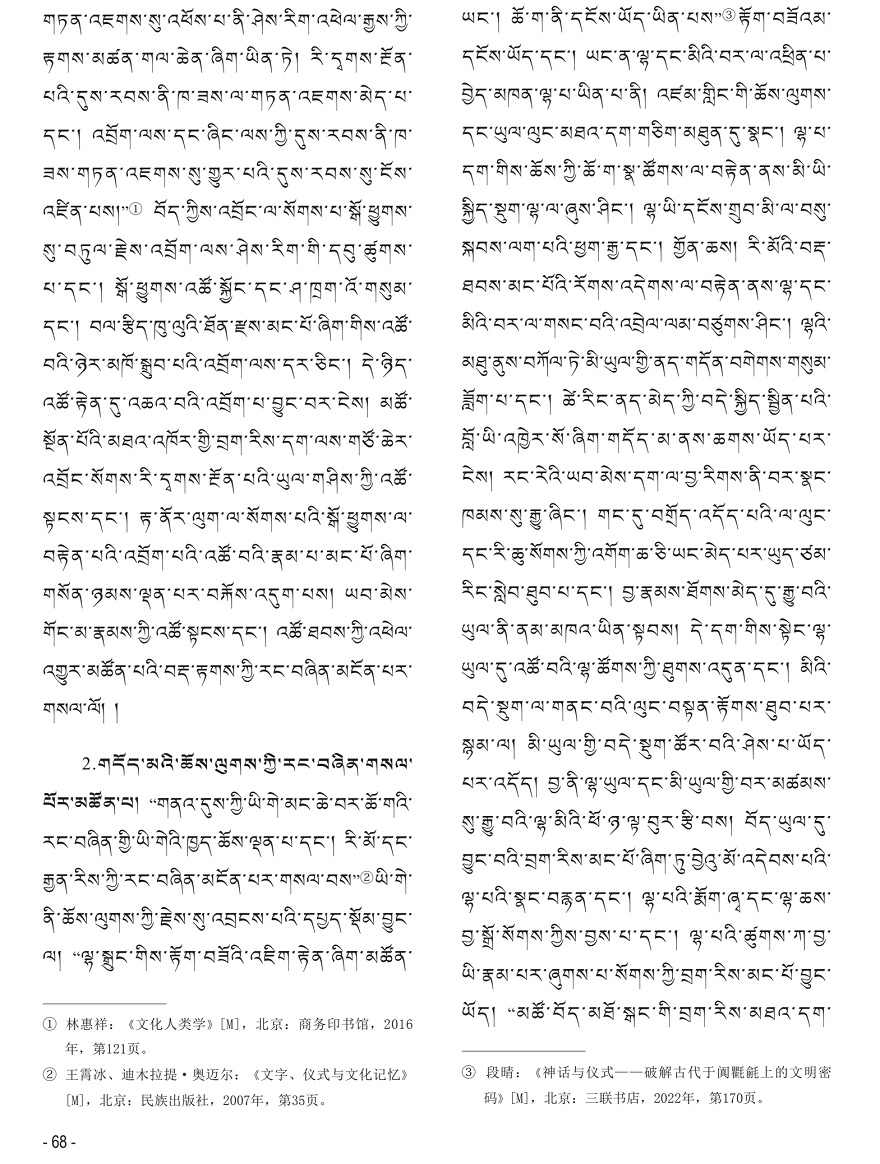 གཏན་འཇགས་སུ་འཕོས་པ་ནི་ཤེས་རིག་འཕེལ་རྒྱས་ཀྱི་
རྟགས་མཚན་གལ་ཆེན་ཞིག་ཡིན་ཏེ། རི་དྭགས་རྔོན་
པའི་དུས་རབས་ནི་ཁ་ཟས་ལ་གཏན་འཇགས་མེད་པ་
དང་། འབྲོག་ལས་དང་ཞིང་ལས་ཀྱི་དུས་རབས་ནི་ཁ་
ཟས་གཏན་འཇགས་སུ་གྱུར་པའི་དུས་རབས་སུ་ངོས་
འཛིན་པས།”① བོད་ཀྱིས་འབྲོང་ལ་སོགས་པ་སྒོ་ཕྱུགས་
སུ་བཏུལ་རྗེས་འབྲོག་ལས་ཤེས་རིག་གི་དབུ་ཚུགས་
པ་དང་། སྒོ་ཕྱུགས་འཚོ་སྐྱོང་དང་ཤ་ཁྲག་འོ་གསུམ་
དང་། བལ་རྩིད་ཁུ་ལུའི་ཐོན་རྫས་མང་པོ་ཞིག་གིས་འཚོ་
བའི་ཉེར་མཁོ་སྒྲུབ་པའི་འབྲོག་ལས་དར་ཅིང་། དེ་ཉིད་
འཚོ་རྟེན་དུ་འཆའ་བའི་འབྲོག་པ་བྱུང་བར་ངེས། མཚོ་
སྔོན་པོའི་མཐའ་འཁོར་གྱི་བྲག་རིས་དག་ལས་གཙོ་ཆེར་
འབྲོང་སོགས་རི་དྭགས་རྔོན་པའི་ཡུལ་གཤིས་ཀྱི་འཚོ་
སྟངས་དང་། རྟ་ནོར་ལུག་ལ་སོགས་པའི་སྒོ་ཕྱུགས་ལ་
བརྟེན་པའི་འབྲོག་པའི་འཚོ་བའི་རྣམ་པ་མང་པོ་ཞིག་
གསོན་ཉམས་ལྡན་པར་བརྐོས་འདུག་པས། ཡབ་མེས་
གོང་མ་རྣམས་ཀྱི་འཚོ་སྟངས་དང་། འཚོ་ཐབས་ཀྱི་འཕེལ་
འགྱུར་མཚོན་པའི་བརྡ་རྟགས་ཀྱི་རང་བཞིན་མངོན་པར་
གསལ་ལོ། །
2.གདོད་མའི་ཆོས་ལུགས་ཀྱི་རང་བཞིན་གསལ་
པོར་མཚོན་པ། “གནའ་དུས་ཀྱི་ཡི་གེ་མང་ཆེ་བར་ཆོ་གའི་
རང་བཞིན་གྱི་ཡི་གེའི་ཁྱད་ཆོས་ལྡན་པ་དང་། རི་མོ་དང་
རྒྱན་རིས་ཀྱི་རང་བཞིན་མངོན་པར་གསལ་བས”②ཡི་གེ་
ནི་ཆོས་ལུགས་ཀྱི་རྗེས་སུ་འབྲངས་པའི་དཔྱད་སྡོམ་བྱུང་
ལ། “ལྷ་སྒྲུང་གིས་རྟོག་བཟོའི་འཇིག་རྟེན་ཞིག་མཚོན་
① 林惠祥：《文化人类学》[M]，北京：商务印书馆，2016
年，第121页。
② 王霄冰、迪木拉提·奥迈尔：《文字、仪式与文化记忆》
[M]，北京：民族出版社，2007年，第35页。
- 68 -
ཡང་། ཆོ་ག་ནི་དངོས་ཡོད་ཡིན་པས”③རྟོག་བཟོའམ་
དངོས་ཡོད་དང་། ཡང་ན་ལྷ་དང་མིའི་བར་ལ་འཕྲིན་པ་
བྱེད་མཁན་ལྷ་པ་ཡིན་པ་ནི། འཛམ་གླིང་གི་ཆོས་ལུགས་
དང་ཡུལ་ལུང་མཐའ་དག་གཅིག་མཐུན་དུ་སྣང་། ལྷ་པ་
དག་གིས་ཆོས་ཀྱི་ཆོ་ག་སྣ་ཚོགས་ལ་བརྟེན་ནས་མི་ཡི་
སྐྱིད་སྡུག་ལྷ་ལ་ཞུས་ཤིང་། ལྷ་ཡི་དངོས་གྲུབ་མི་ལ་བསུ་
སྐབས་ལག་པའི་ཕྱག་རྒྱ་དང་། གྱོན་ཆས། རི་མོའི་བརྡ་
ཐབས་མང་པོའི་རོགས་འདེགས་ལ་བརྟེན་ནས་ལྷ་དང་
མིའི་བར་ལ་གསང་བའི་འབྲེལ་ལམ་བཙུགས་ཤིང་། ལྷའི་
མཐུ་ནུས་བཀོལ་ཏེ་མི་ཡུལ་གྱི་ནད་གདོན་བགེགས་གསུམ་
ཟློག་པ་དང་། ཚེ་རིང་ནད་མེད་ཀྱི་བདེ་སྐྱིད་སྦྱིན་པའི་
བློ་ཡི་འཁྱེར་སོ་ཞིག་གདོད་མ་ནས་ཆགས་ཡོད་པར་
ངེས། རང་རེའི་ཡབ་མེས་དག་ལ་བྱ་རིགས་ནི་བར་སྣང་
ཁམས་སུ་རྒྱུ་ཞིང་། གང་དུ་བགྲོད་འདོད་པའི་ལ་ལུང་
དང་རི་ཆུ་སོགས་ཀྱི་འགོག་ཆ་ཅི་ཡང་མེད་པར་ཡུད་ཙམ་
རིང་སླེབ་ཐུབ་པ་དང་། བྱ་རྣམས་ཐོགས་མེད་དུ་རྒྱུ་བའི་
ཡུལ་ནི་ནམ་མཁའ་ཡིན་སྟབས། དེ་དག་གིས་སྟེང་ལྷ་
ཡུལ་དུ་འཚོ་བའི་ལྷ་ཚོགས་ཀྱི་ཐུགས་འདུན་དང་། མིའི་
བདེ་སྡུག་ལ་གནང་བའི་ལུང་བསྟན་རྟོགས་ཐུབ་པར་
སྙམ་ལ། མི་ཡུལ་གྱི་བདེ་སྡུག་ཚོར་བའི་ཤེས་པ་ཡོད་
པར་འདོད། བྱ་ནི་ལྷ་ཡུལ་དང་མི་ཡུལ་གྱི་བར་མཚམས་
སུ་རྒྱུ་བའི་ལྷ་མིའི་ཕོ་ཉ་ལྟ་བུར་རྩི་བས། བོད་ཡུལ་དུ་
བྱུང་བའི་བྲག་རིས་མང་པོ་ཞིག་ཏུ་བྱེའུ་མོ་འདེབས་པའི་
ལྷ་པའི་སྣང་བརྙན་དང་། ལྷ་པའི་རྨོག་ཞྭ་དང་ལྷ་ཆས་
བྱ་སྒྲོ་སོགས་ཀྱིས་བྱས་པ་དང་། ལྷ་པའི་ཚུགས་ཀ་བྱ་
ཡི་རྣམ་པར་ཞུགས་པ་སོགས་ཀྱི་བྲག་རིས་མང་པོ་བྱུང་
ཡོད། “མཚོ་བོད་མཐོ་སྒང་གི་བྲག་རིས་མཐའ་དག་
③ 段晴：《神话与仪式——破解古代于阗氍毹上的文明密
码》[M]，北京：三联书店，2022年，第170页。